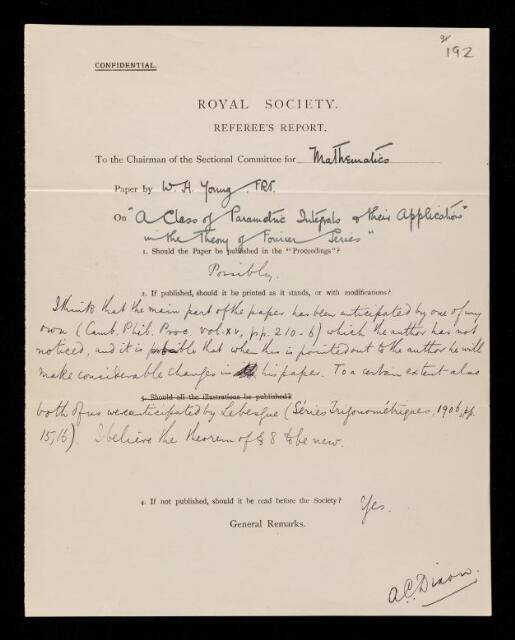 192
CONFIDENTIAL.
ROYAL SOCIETY.
REFEREE'S REPORT.
To the Chairman of the Sectional Committee for Mathematics
Paper by W. H. Young. FRS.
On "A Class of Parametric Integrals & their Application
in the Theory of Fourier Series"
1. Should the Paper be published in the "Proceedings"?
Possibly.
2. If published, should it be printed as it stands, or with modifications?
I think that the main part of the paper has been anticipated by one of my
own (Camb. Phil. Proc. vol. xv, pp. 210-6) which the author has not
noticed, and it is possible that when this is pointed out to the author he will
make considerable changes in his paper. To a certain extent also
3. Should all the illustrations be published?
both of us were anticipated by Lebesgue (Séries Trigonométriques, 1906, pp.
15, 16). I believe the theorem of § 8 to be new.
4. If not published, should it be read before the Society? Yes.
General Remarks.
A.C. Dixon.